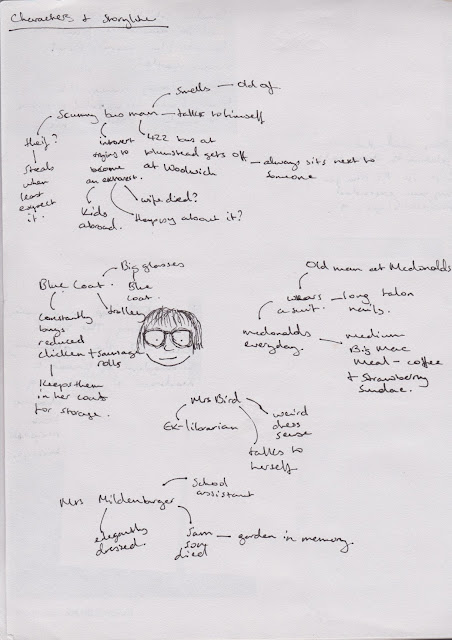 Characters + Storyline
Smells — Old of
Scummy bus man — talks to himself
theif?
Steals
when
least
expect
it.
introvert
trying to
become
an extrovert.
422 bus at
plumstead gets off
at Woolwich
— always sits next to
someone
Kids
abroad.
wife died?
Happy about it?
Blue Coat.
Big glasses
Blue
coat.
trolley
Constantly
buys
reduced
chicken + sausage
rolls
Keeps them
in her coat
for storage.
Old man at Mcdonalds
wears
a suit.
long talon
nails.
mcdonalds
everyday.
medium
Big Mac
Meal — coffee
+ Strawberry
Sundae.
Mrs Bird
EX-librarian
weird
dress
sense
talks to
herself
Mrs Mildenburger
School
assistant
elegantly
dressed.
Sam
son
died
— garden in memory.